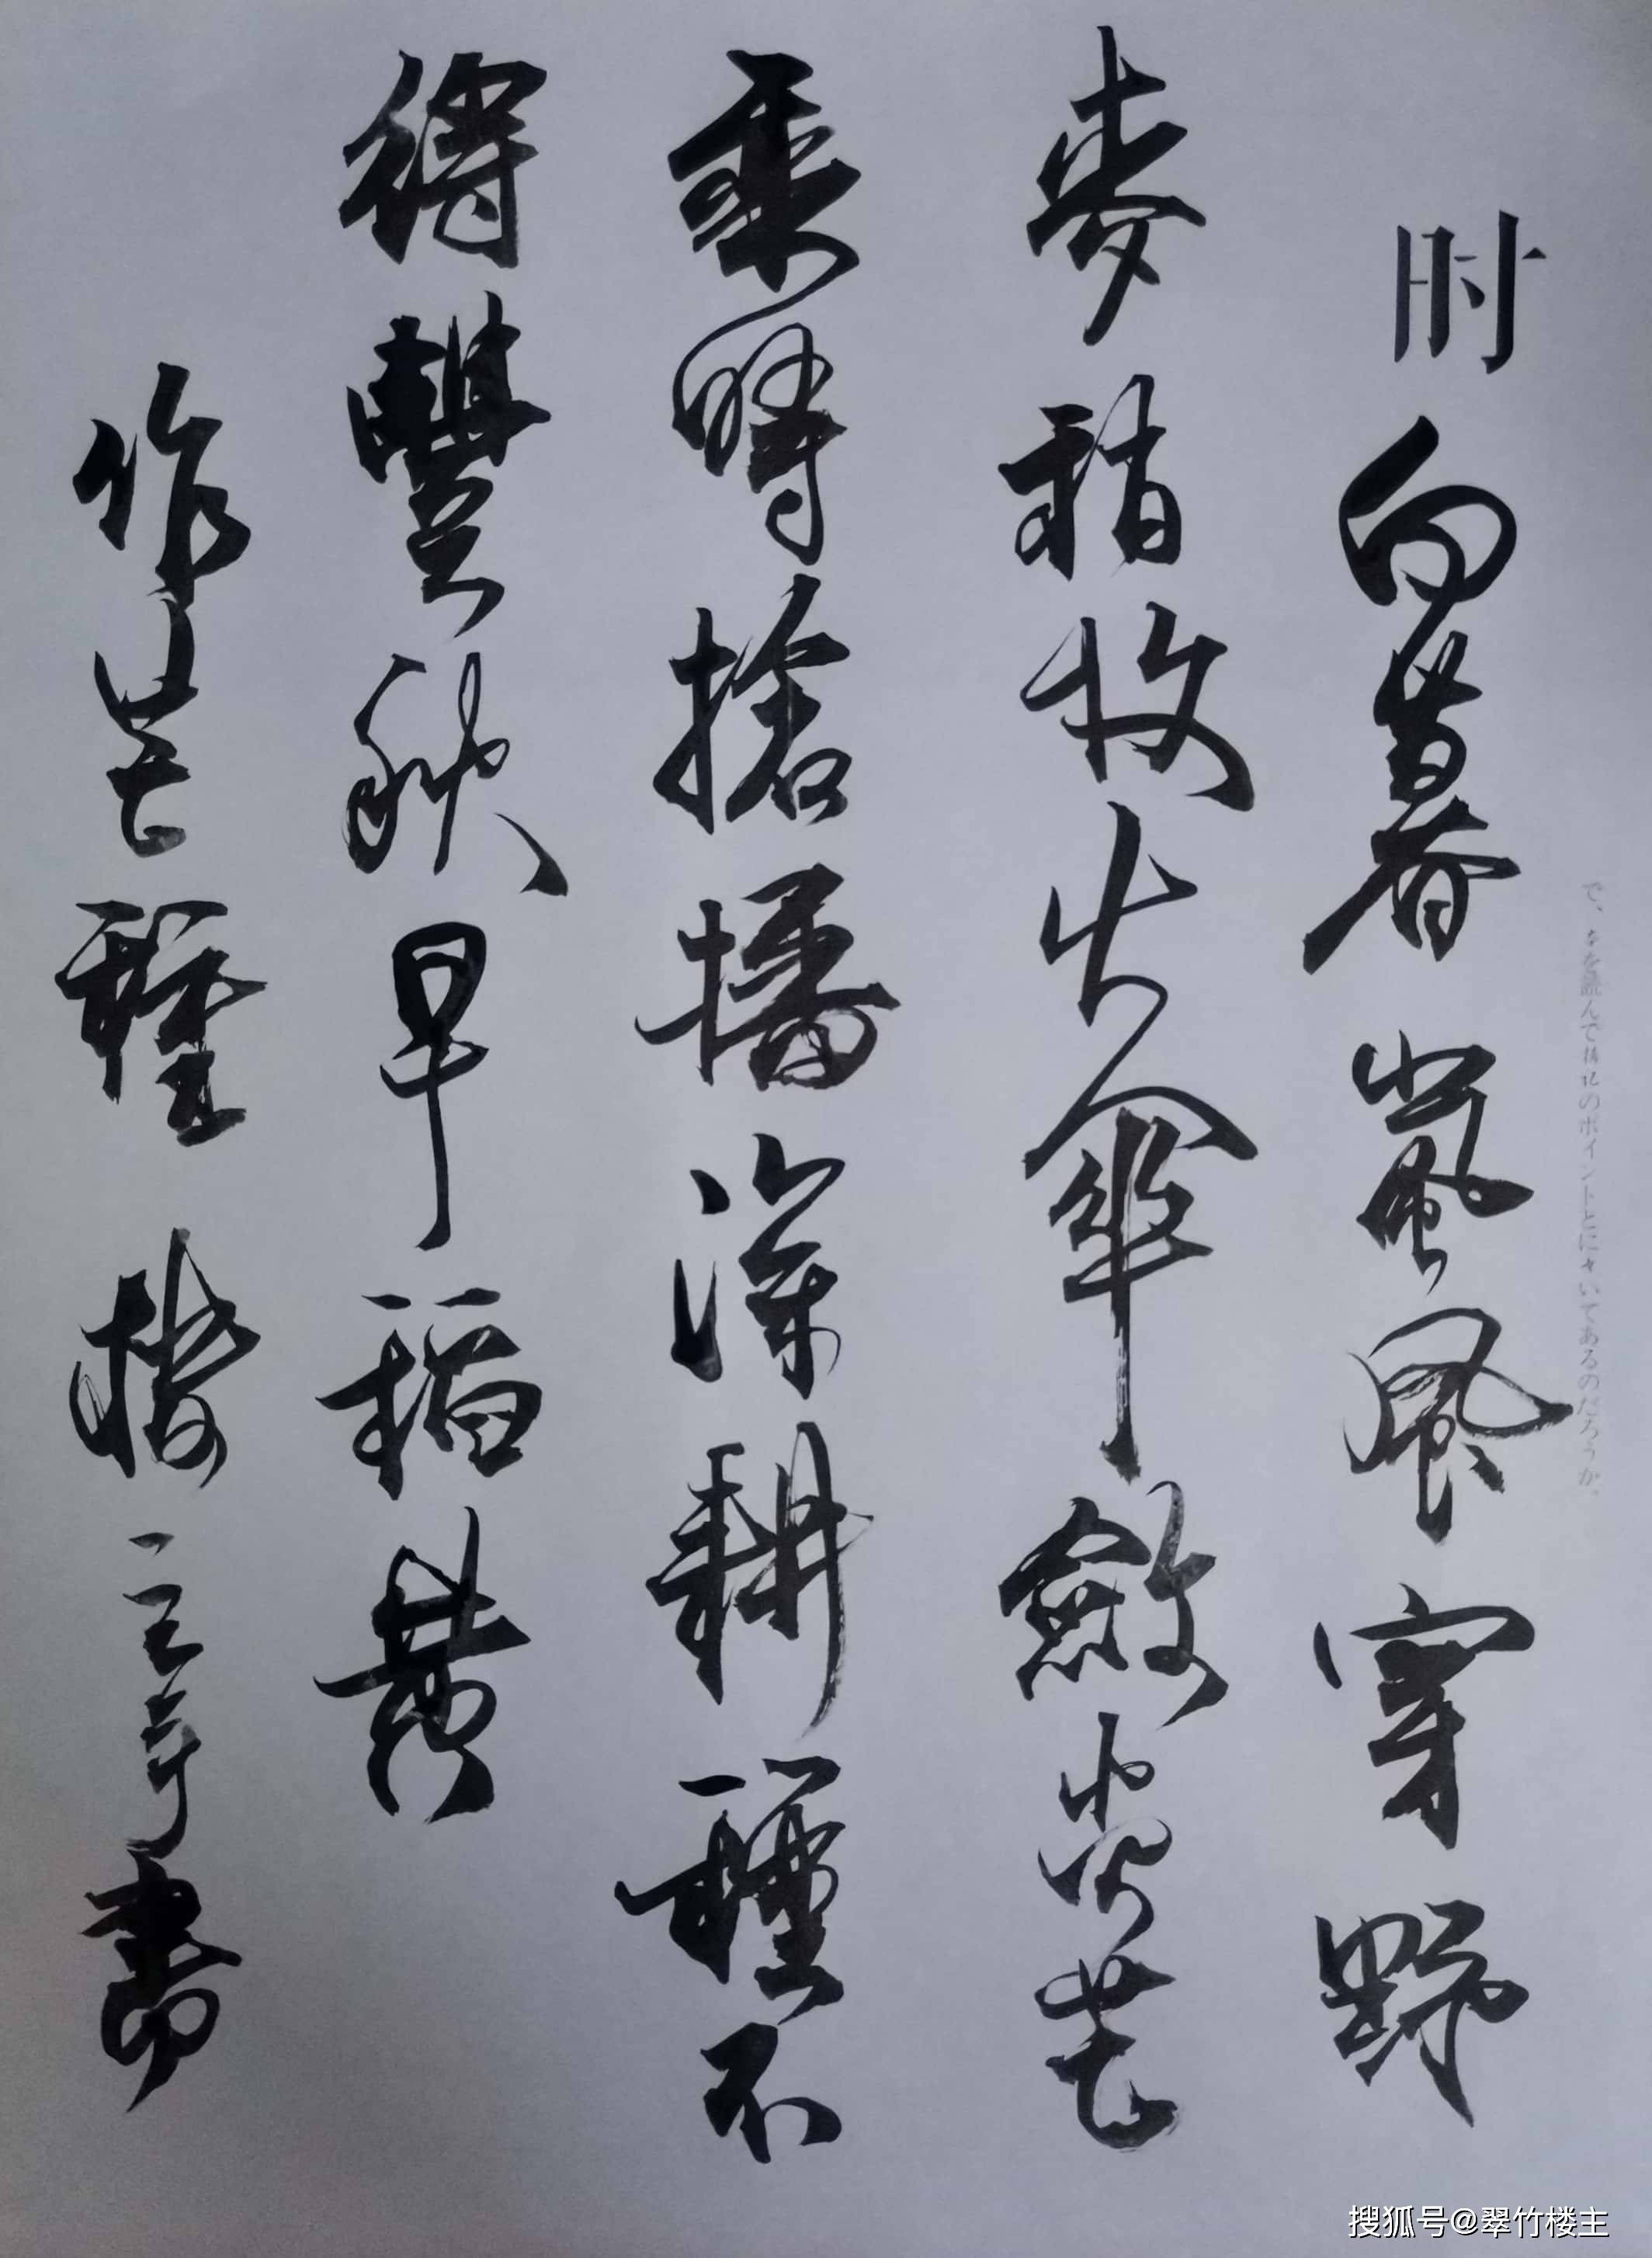 时
向暮嵐風穿野
麥稍收火傘斂光芒
乘時搶播深耕種不
得豐秋早稻黄
作芒種 樓主書
を読んで のポイントとに いてあるのだろうか。
搜狐号@翠竹楼主